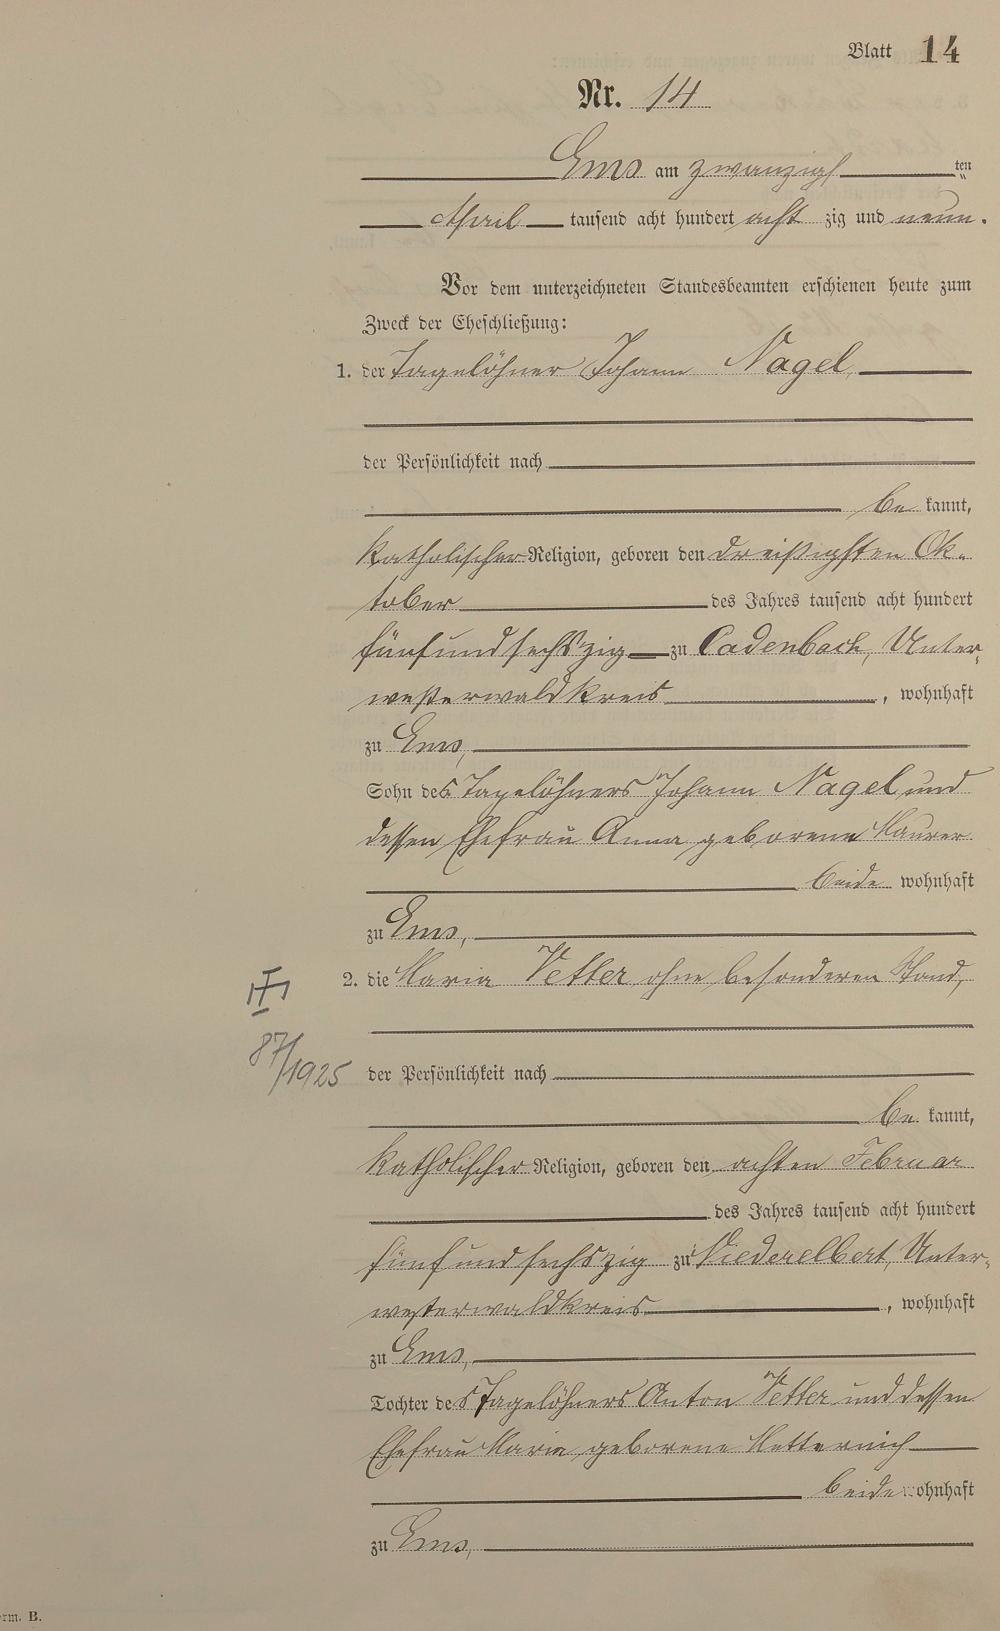 Blatt 14
Nr. 14
Ems am zwanzigsten
April tausend acht hundert acht zig und neun.
Vor dem unterzeichneten Standesbeamten erschienen heute zum
Zweck der Eheschließung:
1. der Tagelöhner Johann Nagel
der Persönlichkeit nach
be kannt,
katholischer Religion, geboren den dreißigsten Ok-
tober des Jahres tausend acht hundert
fünfundsechszig zu Cadenbach, Unter-
westerwaldkreis, wohnhaft
zu Ems,
Sohn des Tagelöhners Johann Nagel und
dessen Ehefrau Anna geborene Maurer
beide wohnhaft
zu Ems,
2. die Maria Vetter ohne besonderen Stand,
87/1925
der Persönlichkeit nach
be kannt,
katholischer Religion, geboren den achten Februar
des Jahres tausend acht hundert
fünfundsechszig zu Niederelbert, Unter-
westerwaldkreis, wohnhaft
zu Ems,
Tochter des Tagelöhners Anton Vetter und dessen
Ehefrau Maria geborene Metternich
beide wohnhaft
zu Ems,
rm. B.